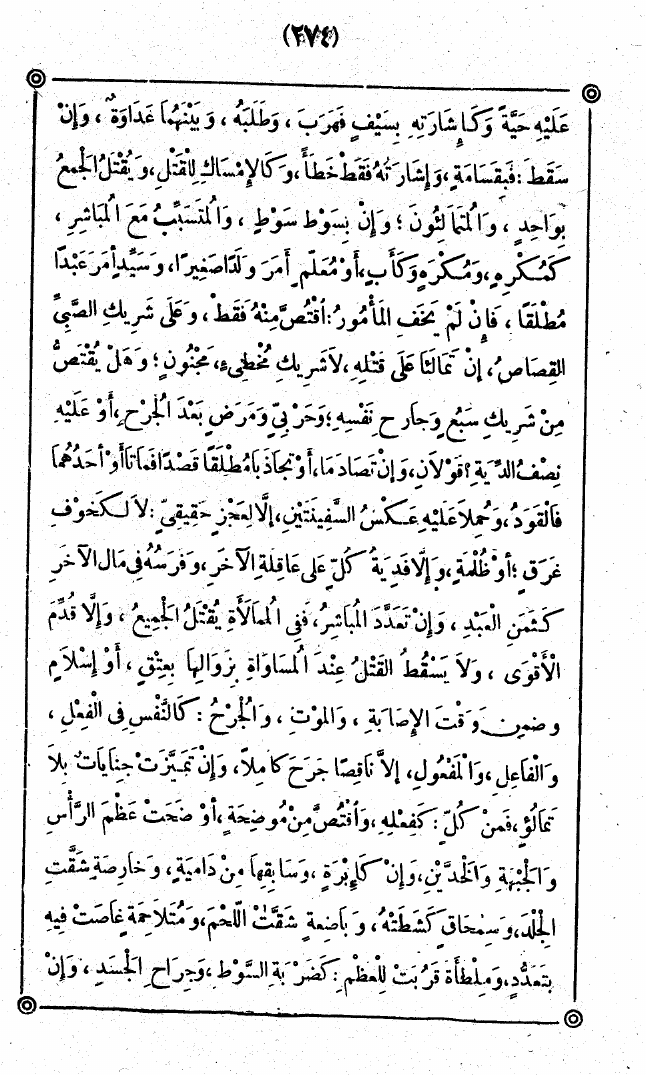 (٢٧٤)
عَلَيْهِ حَيَّةً وَكَإِشَارَتِهِ بِسَيْفٍ فَهَرَبَ ، وَطَلَبَهُ ، وَبَيْنَهُمَا عَدَاوَةٌ ، وَإِنْ
سَقَطَ : فَبِقَسَامَةٍ ، وَإِشَارَتُهُ فَقَطْ خَطَأٌ ، وَكَالإِمْسَاكِ لِلْقَتْلِ ، وَيُقْتَلُ الْجَمْعُ
بِوَاحِدٍ ، وَالْمُتَمَالِئُونَ ؛ وَإِنْ بِسَوْطٍ سَوْطٍ ، وَالْمُتَسَبِّبُ مَعَ الْمُبَاشِرِ ،
كَمُكْرِهٍ ، وَمُكْرَهٍ وَكَأَبٍ ، أَوْ مُعَلِّمٍ أَمَرَ وَلَدًا صَغِيرًا ، وَسَيِّدٍ أَمَرَ عَبْدًا
مُطْلَقًا ، فَإِنْ لَمْ يَخَفِ الْمَأْمُورُ : اُقْتُصَّ مِنْهُ فَقَطْ ، وَعَلَى شَرِيكِ الصَّبِيِّ
القِصَاصُ ، إِنْ تَمَالَئَا عَلَى قَتْلِهِ ، لاَ شَرِيكِ مُخْطِىءٍ ، مَجْنُونٍ ؛ وَهَلْ يُقْتَصُّ
مِنْ شَرِيكِ سَبُعٍ وَجَارِحِ نَفْسِهِ ؛ وَحَرْبِيٍّ وَمَرَضٍ بَعْدَ الْجُرْحِ ، أَوْ عَلَيْهِ
نِصْفُ الدِّيَةِ ؟ قَوْلاَنِ ، وَإِنْ تَصَادَمَا ، أَوْ تَجَاذَبَا مُطْلَقًا قَصْدًا فَمَاتَا أَوْ أَحَدُهُمَا
فَالْقَوَدُ ، وَحُمِلاَ عَلَيْهِ عَكْسُ السَّفِينَتَيْنِ ، إِلَّا لِعَجْزٍ حَقِيقِيٍّ : لاَ لِكَخَوْفِ
غَرَقٍ ؛ أَوْ ظُلْمَةٍ ، وَإِلَّا فَدِيَةُ كُلٍّ عَلَى عَاقِلَةِ الآخَرِ ، وَفَرَسُهُ فِى مَالِ الآخَرِ
كَثَمَنِ الْعَبْدِ ، وَإِنْ تَعَدَّدَ الْمُبَاشِرُ ، فَفِى الْمُمَالَأَةِ يُقْتَلُ الْجَمِيعُ ، وَإِلَّا قُدِّمَ
الْأَقْوَى ، وَلاَ يَسْقُطُ الْقَتْلُ عِنْدَ الْمُسَاوَاةِ بِزَوَالِهَا بِعِتْقٍ ، أَوْ إِسْلاَمٍ
وَضَمِنَ وَقْتَ الإِصَابَةِ ، وَالْمَوْتِ ، وَالْجُرْحُ : كَالنَّفْسِ فِى الْفِعْلِ ،
وَالْفَاعِلِ ، وَالْمَفْعُولِ ، إِلاَّ نَاقِصًا جَرَحَ كَامِلاً ، وَإِنْ تَمَيَّزَتْ جِنَايَاتٌ بِلاَ
تَمَالُؤٍ ، فَمِنْ كُلٍّ : كَفِعْلِهِ ، وَاُقْتُصَّ مِنْ مُوضِحَةٍ ، أَوْضَحَتْ عَظْمَ الرَّأْسِ
وَالْجَبْهَةِ وَالْخَدَّيْنِ ، وَإِنْ كَإِبْرَةٍ ، وَسَابِقِهَا مِنْ دَامِيَةٍ ، وَحَارِصَةٍ شَقَّتِ
الْجِلْدَ ، وَسِمْحَاقٍ كَشَطَتْهُ ، وَبَاضِعَةٍ شَقَّتْ اللَّحْمَ ، وَمُتَلاَحِمَةٍ غَاصَتْ فِيهِ
بِتَعَدُّدٍ ، وَمِلْطَأَةٍ قَرُبَتْ لِلْعَظْمِ : كَضَرْبَةِ السَّوْطِ ، وَجِرَاحِ الْجَسَدِ ، وَإِنْ